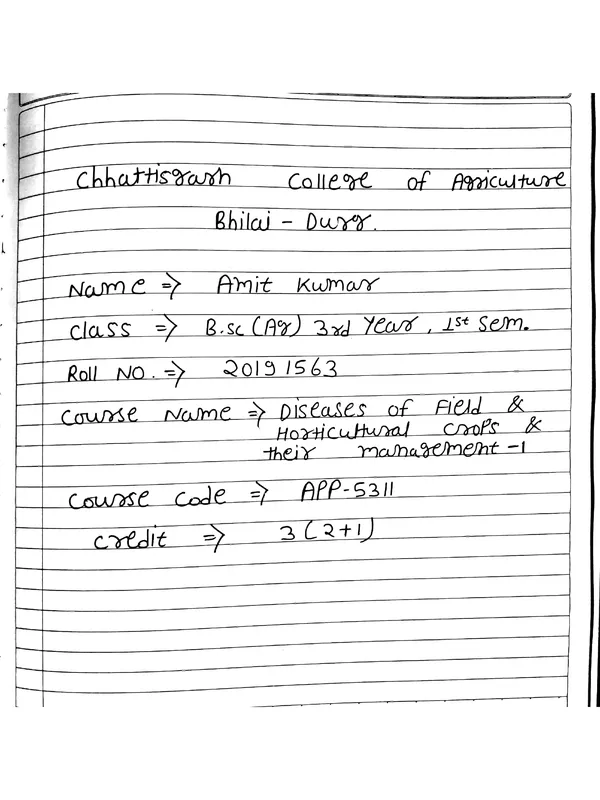 Chhattisgarh College of Agriculture
Bhilai - Durg.
Name => Amit Kumar
Class => B.sc (Ag) 3rd Year, 1st Sem.
Roll NO. => 20191563
Course Name => Diseases of Field &
Horticultural crops &
their management -1
Course Code => APP-5311
Credit => 3 (2+1)